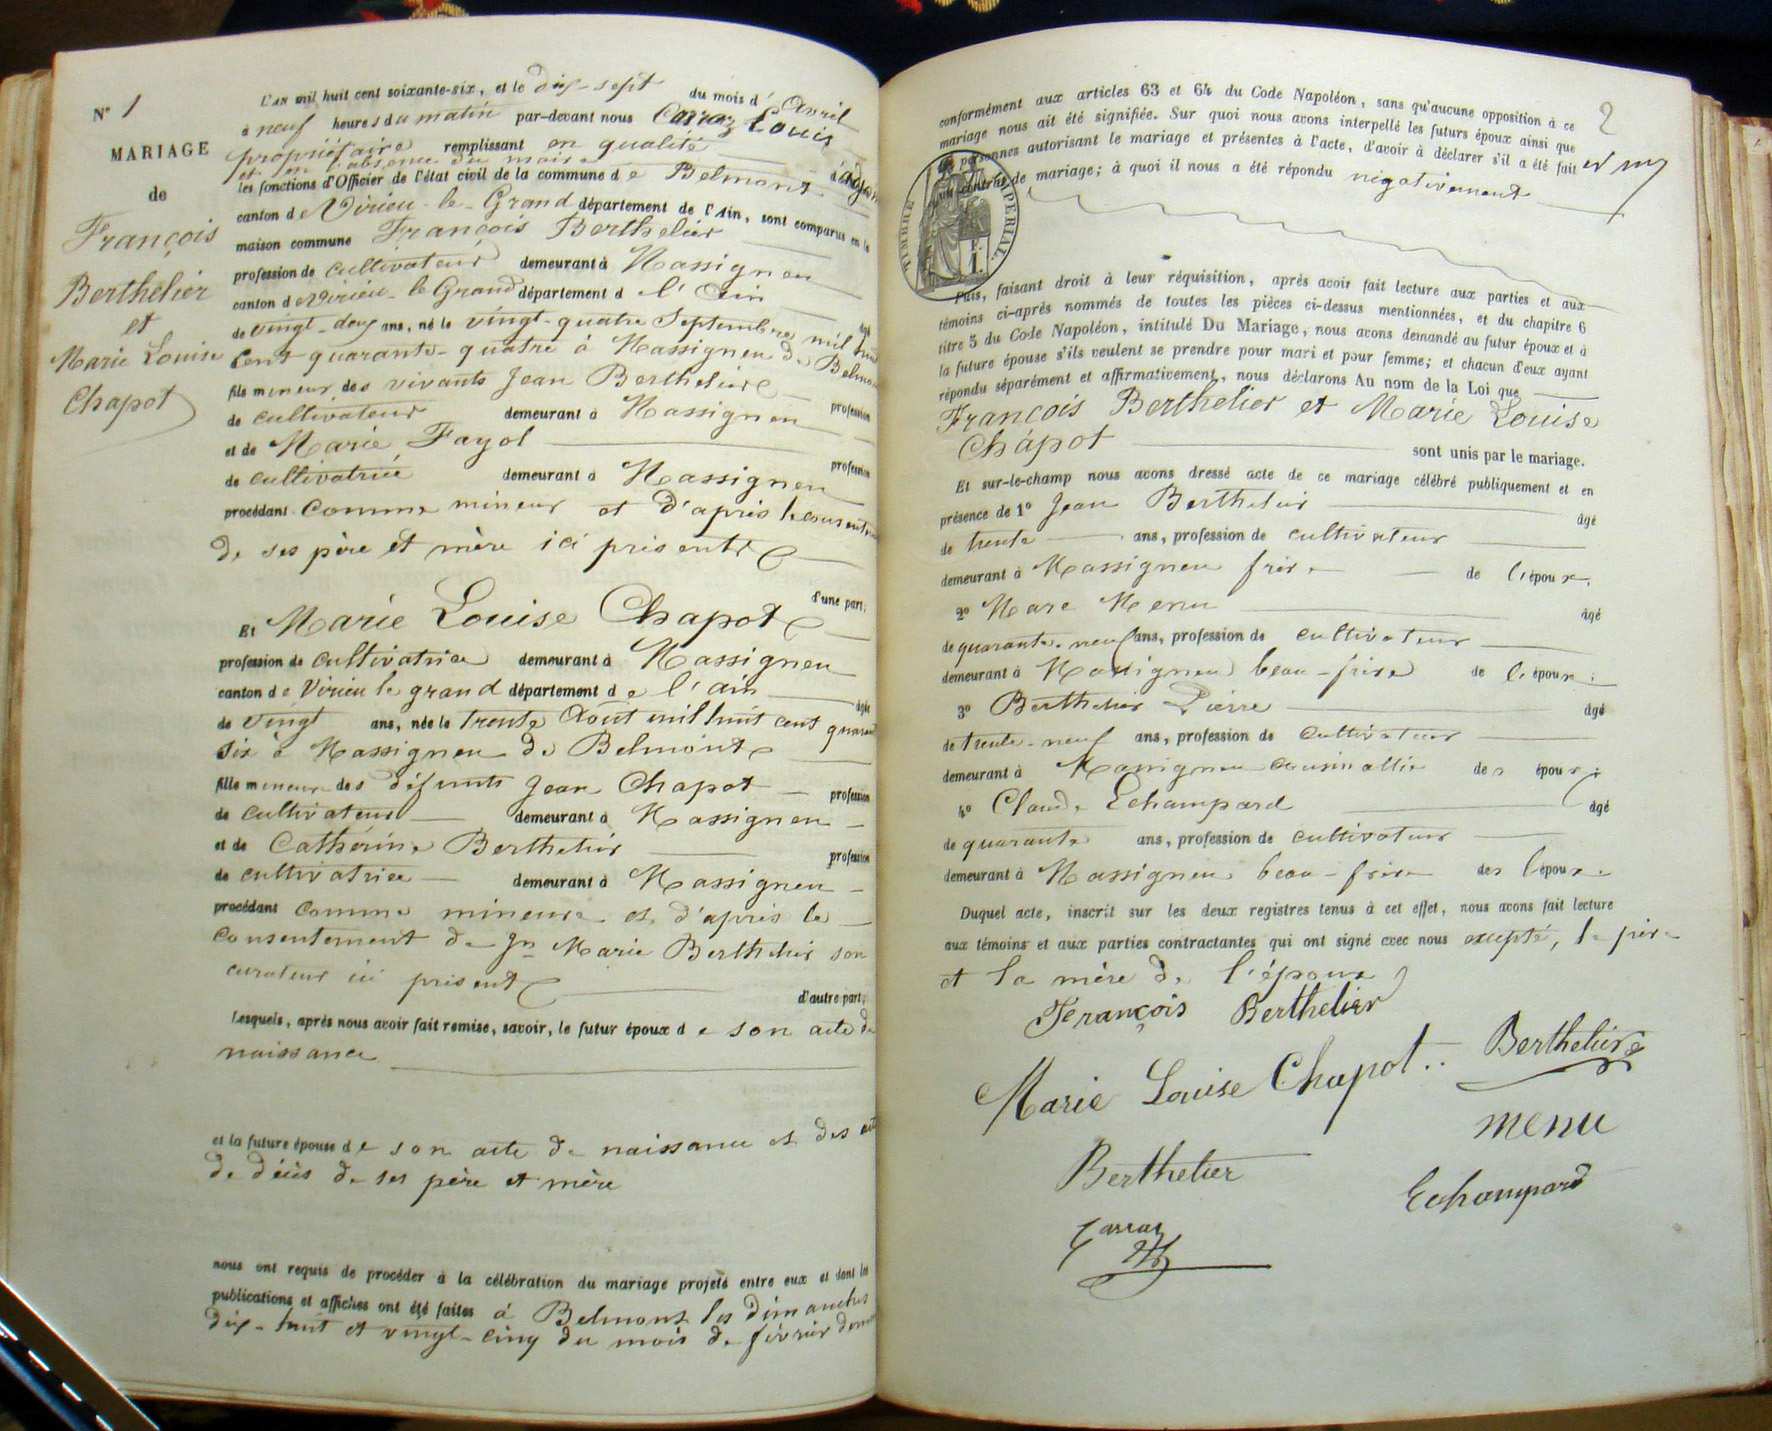 N° 1
MARIAGE
de
François
Berthelier
et
Marie Louise
Chapot
L'AN mil huit cent soixante-six, et le dix-sept du mois d'Avril
à neuf heures du matin par-devant nous Carraz Louis
propriétaire remplissant en qualité
et en absence du maire
les fonctions d'Officier de l'état civil de la commune de Belmont
canton de Virieu-le-Grand département de l'Ain, sont comparus en la
maison commune François Berthelier
profession de cultivateur demeurant à Massigneu
canton de Virieu-le Grand département de l'Ain âgé
de vingt-deux ans, né le vingt-quatre Septembre mil huit
cent quarante-quatre à Massigneu de Belmont
fils mineur des vivants Jean Berthelier profession
de cultivateur demeurant à Massigneu
et de Marie Fayol profession
de cultivatrice demeurant à Massigneu
procédant comme mineur et d'après le consentement
de ses père et mère ici présents
d'une part;
Et Marie Louise Chapot
profession de cultivatrice demeurant à Massigneu
canton de Virieu le grand département de l'ain âgée
de vingt ans, née le trente Août mil huit cent quarante
six à Massigneu de Belmont
fille mineure des défunts Jean Chapot profession
de cultivateur demeurant à Massigneu
et de Catherine Berthelier profession
de cultivatrice demeurant à Massigneu
procédant comme mineure et d'après le
consentement de Jn Marie Berthelier son
curateur ici présent
d'autre part;
Lesquels, après nous avoir fait remise, savoir, le futur époux de son acte de
naissance
et la future épouse de son acte de naissance et des actes
de décès de ses père et mère
nous ont requis de procéder à la célébration du mariage projeté entre eux et dont les
publications et affiches ont été faites à Belmont les dimanches
dix-huit et vingt-cinq du mois de février dernier
2
conformément aux articles 63 et 64 du Code Napoléon, sans qu'aucune opposition à ce
mariage nous ait été signifiée. Sur quoi nous avons interpellé les futurs époux ainsi que
les personnes autorisant le mariage et présentes à l'acte, d'avoir à déclarer s'il a été fait
un contrat de mariage; à quoi il nous a été répondu négativement
TIMBRE IMPÉRIAL
Puis, faisant droit à leur réquisition, après avoir fait lecture aux parties et aux
témoins ci-après nommés de toutes les pièces ci-dessus mentionnées, et du chapitre 6
titre 5 du Code Napoléon, intitulé Du Mariage, nous avons demandé au futur époux et à
la future épouse s'ils veulent se prendre pour mari et pour femme; et chacun d'eux ayant
répondu séparément et affirmativement, nous déclarons Au nom de la Loi que
François Berthelier et Marie Louise
Chapot sont unis par le mariage.
Et sur-le-champ nous avons dressé acte de ce mariage célébré publiquement et en
présence de 1° Jean Berthelier âgé
de trente ans, profession de cultivateur
demeurant à Massigneu frère de l'époux;
2° Marc Menu âgé
de quarante-neuf ans, profession de cultivateur
demeurant à Massigneu beau-frère de l'époux;
3° Berthelier Pierre âgé
de trente-neuf ans, profession de cultivateur
demeurant à Massigneu cousin allié des époux;
4° Claude Echampard âgé
de quarante ans, profession de cultivateur
demeurant à Massigneu beau-frère de l'époux
Duquel acte, inscrit sur les deux registres tenus à cet effet, nous avons fait lecture
aux témoins et aux parties contractantes qui ont signé avec nous excepté, le père
et la mère de l'époux
François Berthelier
Marie Louise Chapot Berthelier
Berthelier menu
Echampard
Carraz